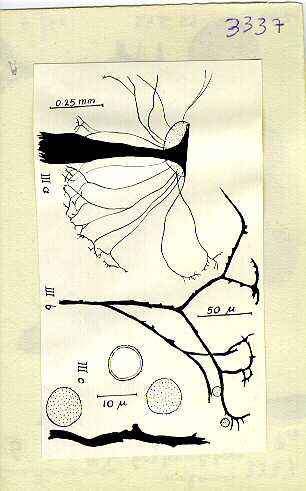 3337
0.25 mm
III a
III b
50 µ
III c
10 µ